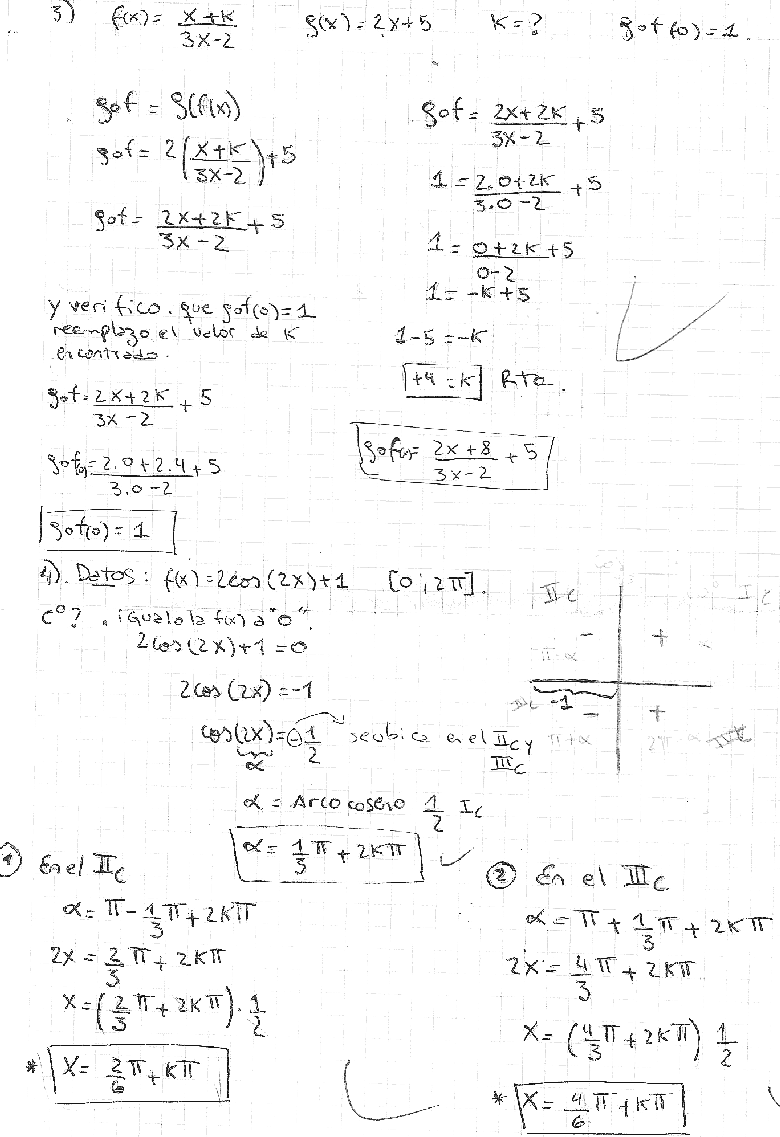 3) f(x) = (x+k)/(3x-2)   g(x) = 2x+5   k=?   gof(0) = 1.
gof = g(f(x))
gof = 2((x+k)/(3x-2)) + 5
gof = (2x+2k)/(3x-2) + 5
gof = (2x+2k)/(3x-2) + 5
1 = (2.0+2k)/(3.0-2) + 5
1 = (0+2k)/(0-2) + 5
1 = -k+5
1-5 = -k
+4 = k Rta.
gof(x) = (2x+8)/(3x-2) + 5
y verifico. que gof(0) = 1
reemplazo el valor de k
encontrado.
gof = (2x+2k)/(3x-2) + 5
gof(0) = (2.0+2.4)/(3.0-2) + 5
gof(0) = 1
4). Datos: f(x) = 2cos(2x)+1   [0;2π].
C°? . igualo la f(x) a "0".
2cos(2x)+1 = 0
2cos(2x) = -1
cos(2x) = -1/2 se ubica en el IIC y
α
IIIC
α = Arco coseno 1/2 IC
α = 1/3 π + 2kπ
IIC
IC
- +
π-α
-1
IIIC
- +
π+α 2π-α
① En el IIC
α = π - 1/3 π + 2kπ
2x = 2/3 π + 2kπ
x = (2/3 π + 2kπ) . 1/2
* x = 2/6 π + kπ
② En el IIIC
α = π + 1/3 π + 2kπ
2x = 4/3 π + 2kπ
x = (4/3 π + 2kπ) 1/2
* x = 4/6 π + kπ